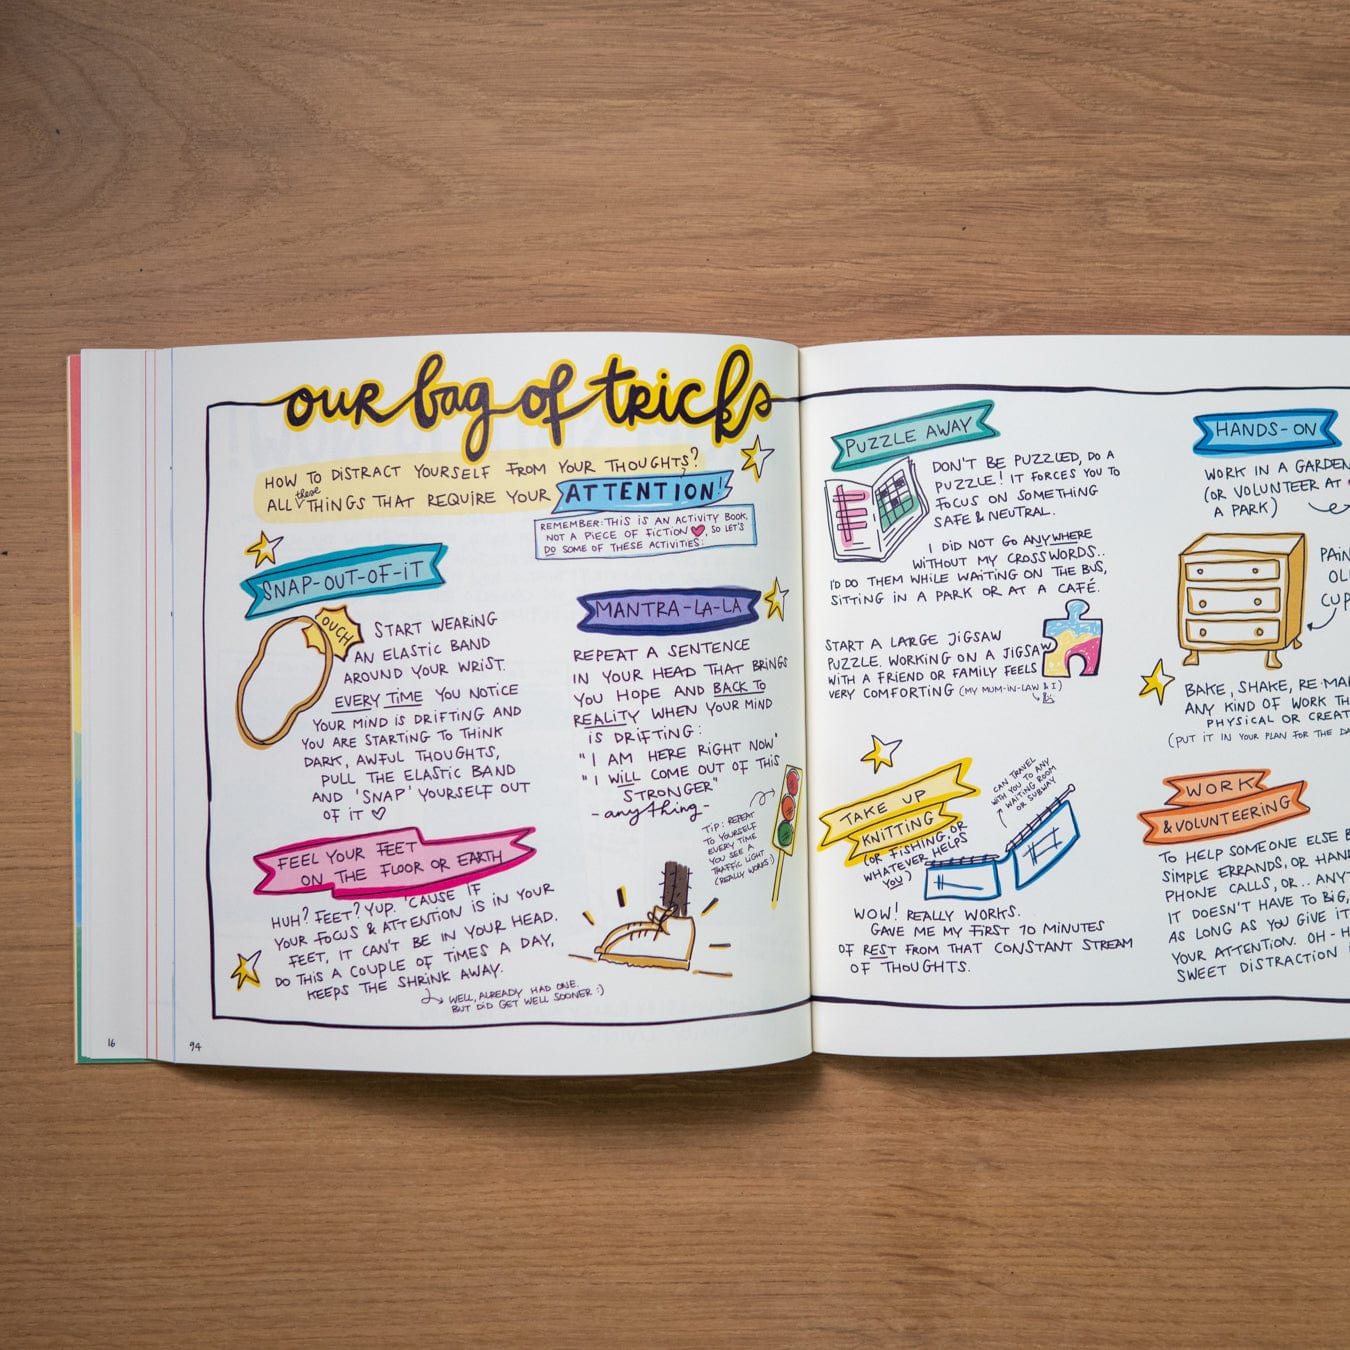 our bag of tricks
HOW TO DISTRACT YOURSELF FROM YOUR THOUGHTS?
ALL these THINGS THAT REQUIRE YOUR ATTENTION!
REMEMBER: THIS IS AN ACTIVITY BOOK,
NOT A PIECE OF FICTION ♥, SO LET'S
DO SOME OF THESE ACTIVITIES:
SNAP-OUT-OF-IT
OUCH
START WEARING
AN ELASTIC BAND
AROUND YOUR WRIST.
EVERY TIME YOU NOTICE
YOUR MIND IS DRIFTING AND
YOU ARE STARTING TO THINK
DARK, AWFUL THOUGHTS,
PULL THE ELASTIC BAND
AND 'SNAP' YOURSELF OUT
OF IT ♡
FEEL YOUR FEET
ON THE FLOOR OR EARTH
HUH? FEET? YUP. 'CAUSE IF
YOUR FOCUS & ATTENTION IS IN YOUR
FEET, IT CAN'T BE IN YOUR HEAD.
DO THIS A COUPLE OF TIMES A DAY,
KEEPS THE SHRINK AWAY.
WELL, ALREADY HAD ONE.
BUT DID GET WELL SOONER :)
MANTRA-LA-LA
REPEAT A SENTENCE
IN YOUR HEAD THAT BRINGS
YOU HOPE AND BACK TO
REALITY WHEN YOUR MIND
IS DRIFTING:
"I AM HERE RIGHT NOW"
"I WILL COME OUT OF THIS
STRONGER"
-anything-
TIP: REPEAT
TO YOURSELF
EVERY TIME
YOU SEE A
TRAFFIC LIGHT
(REALLY WORKS :)
16
94
PUZZLE AWAY
DON'T BE PUZZLED, DO A
PUZZLE! IT FORCES YOU TO
FOCUS ON SOMETHING
SAFE & NEUTRAL.
I DID NOT GO ANYWHERE
WITHOUT MY CROSSWORDS..
I'D DO THEM WHILE WAITING ON THE BUS,
SITTING IN A PARK OR AT A CAFÉ.
START A LARGE JIGSAW
PUZZLE. WORKING ON A JIGSAW
WITH A FRIEND OR FAMILY FEELS
VERY COMFORTING (MY MUM-IN-LAW & I)
TAKE UP
KNITTING
(OR FISHING, OR
WHATEVER HELPS
YOU)
CAN TRAVEL
WITH YOU TO ANY
WAITING ROOM
OR SUBWAY
WOW! REALLY WORKS.
GAVE ME MY FIRST 10 MINUTES
OF REST FROM THAT CONSTANT STREAM
OF THOUGHTS.
HANDS-ON
WORK IN A GARDEN
(OR VOLUNTEER AT
A PARK)
BAKE, SHAKE, RE-MA
ANY KIND OF WORK TH
PHYSICAL OR CREAT
(PUT IT IN YOUR PLAN FOR THE DA
WORK
& VOLUNTEERING
TO HELP SOMEONE ELSE
SIMPLE ERRANDS, OR HAN
PHONE CALLS, OR.. ANYT
IT DOESN'T HAVE TO BE BIG,
AS LONG AS YOU GIVE IT
YOUR ATTENTION. OH-H
SWEET DISTRACTION